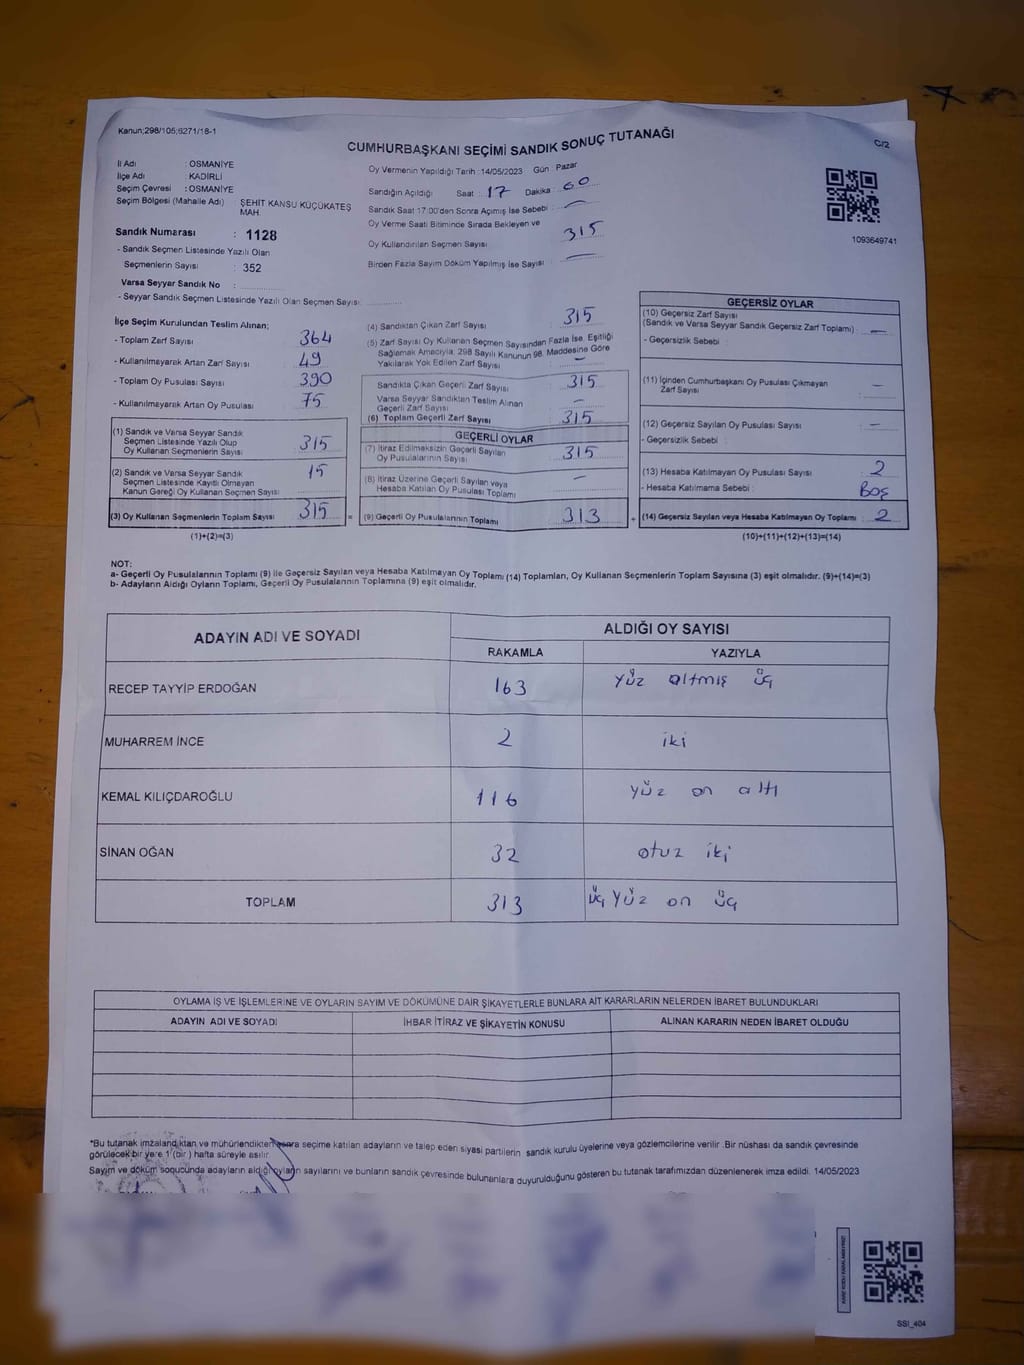 Kanun;298/105;6271/18-1
CUMHURBAŞKANI SEÇİMİ SANDIK SONUÇ TUTANAĞI
C/2
İl Adı : OSMANİYE
İlçe Adı : KADİRLİ
Seçim Çevresi : OSMANİYE
Seçim Bölgesi (Mahalle Adı) ŞEHİT KANSU KÜÇÜKATEŞ MAH.
Sandık Numarası : 1128
- Sandık Seçmen Listesinde Yazılı Olan
Seçmenlerin Sayısı : 352
Varsa Seyyar Sandık No :
- Seyyar Sandık Seçmen Listesinde Yazılı Olan Seçmen Sayısı:
Oy Vermenin Yapıldığı Tarih :14/05/2023 Gün Pazar
Sandığın Açıldığı Saat : 17 Dakika : 00
Sandık Saat 17:00'den Sonra Açımış İse Sebebi : —
Oy Verme Saati Bitiminde Sırada Bekleyen ve
Oy Kullandırılan Seçmen Sayısı 315
Birden Fazla Sayım Döküm Yapılmış İse Sayısı : —
1093649741
İlçe Seçim Kurulundan Teslim Alınan;
- Toplam Zarf Sayısı : 364
- Kullanılmayarak Artan Zarf Sayısı : 49
- Toplam Oy Pusulası Sayısı : 390
- Kullanılmayarak Artan Oy Pusulası : 75
(1) Sandık ve Varsa Seyyar Sandık
Seçmen Listesinde Yazılı Olup
Oy Kullanan Seçmenlerin Sayısı : 315
(2) Sandık ve Varsa Seyyar Sandık
Seçmen Listesinde Kayıtlı Olmayan
Kanun Gereği Oy Kullanan Seçmen Sayısı 15
(3) Oy Kullanan Seçmenlerin Toplam Sayısı 315 =
(1)+(2)=(3)
(4) Sandıktan Çıkan Zarf Sayısı : 315
(5) Zarf Sayısı Oy Kullanan Seçmen Sayısından Fazla İse, Eşitliği
Sağlamak Amacıyla, 298 Sayılı Kanunun 98. Maddesine Göre
Yakılarak Yok Edilen Zarf Sayısı : —
Sandıkta Çıkan Geçerli Zarf Sayısı : 315
Varsa Seyyar Sandıktan Teslim Alınan
Geçerli Zarf Sayısı : —
(6) Toplam Geçerli Zarf Sayısı : 315
GEÇERLİ OYLAR
(7) İtiraz Edilmeksizin Geçerli Sayılan
Oy Pusulalarının Sayısı : 315
(8) İtiraz Üzerine Geçerli Sayılan veya
Hesaba Katılan Oy Pusulası Toplamı : —
(9) Geçerli Oy Pusulalarının Toplamı : 313 +
GEÇERSİZ OYLAR
(10) Geçersiz Zarf Sayısı
(Sandık ve Varsa Seyyar Sandık Geçersiz Zarf Toplamı) : —
- Geçersizlik Sebebi :
(11) İçinden Cumhurbaşkanı Oy Pusulası Çıkmayan
Zarf Sayısı : —
(12) Geçersiz Sayılan Oy Pusulası Sayısı : —
- Geçersizlik Sebebi :
(13) Hesaba Katılmayan Oy Pusulası Sayısı : 2
- Hesaba Katılmama Sebebi : Boş
(14) Geçersiz Sayılan veya Hesaba Katılmayan Oy Toplamı : 2
(10)+(11)+(12)+(13)=(14)
NOT:
a- Geçerli Oy Pusulalarının Toplamı (9) ile Geçersiz Sayılan veya Hesaba Katılmayan Oy Toplamı (14) Toplamları, Oy Kullanan Seçmenlerin Toplam Sayısına (3) eşit olmalıdır. (9)+(14)=(3)
b- Adayların Aldığı Oyların Toplamı, Geçerli Oy Pusulalarının Toplamına (9) eşit olmalıdır.
ADAYIN ADI VE SOYADI ALDIĞI OY SAYISI
RAKAMLA YAZIYLA
RECEP TAYYİP ERDOĞAN 163 yüz altmış üç
MUHARREM İNCE 2 iki
KEMAL KILIÇDAROĞLU 116 yüz on altı
SİNAN OĞAN 32 otuz iki
TOPLAM 313 üç yüz on üç
OYLAMA İŞ VE İŞLEMLERİNE VE OYLARIN SAYIM VE DÖKÜMÜNE DAİR ŞİKAYETLERLE BUNLARA AİT KARARLARIN NELERDEN İBARET BULUNDUKLARI
ADAYIN ADI VE SOYADI İHBAR İTİRAZ VE ŞİKAYETİN KONUSU ALINAN KARARIN NEDEN İBARET OLDUĞU
*Bu tutanak imzalandıktan ve mühürlendikten sonra seçime katılan adayların ve talep eden siyasi partilerin sandık kurulu üyelerine veya gözlemcilerine verilir .Bir nüshası da sandık çevresinde
görülecek bir yere 1 (bir ) hafta süreyle asılır.
Sayım ve döküm sonucunda adayların aldığı oyların sayılarını ve bunların sandık çevresinde bulunanlara duyurulduğunu gösteren bu tutanak tarafımızdan düzenlenerek imza edildi. 14/05/2023
SSI_404